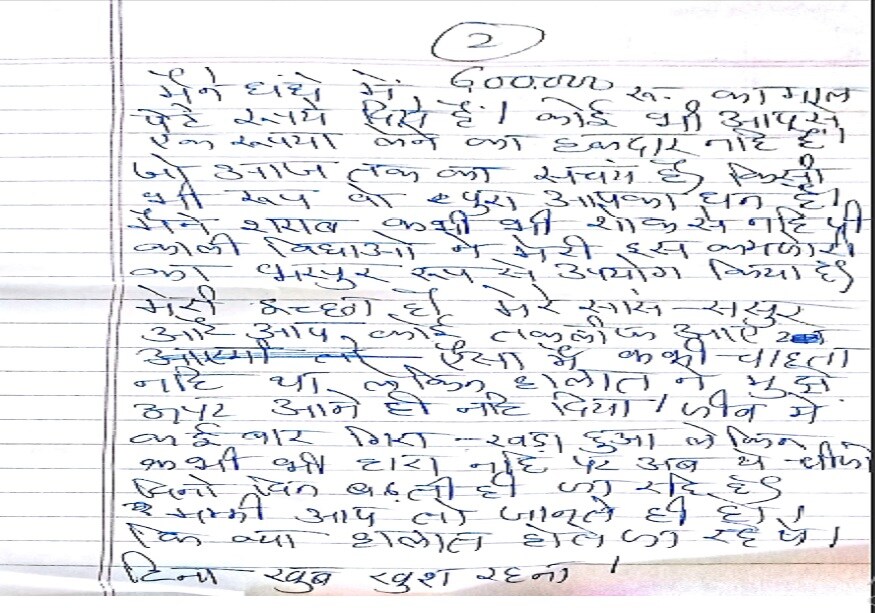 2
मैने धंधे में 600000 रू. का माल
पेटे रूपये दिये हैं। कोई भी आपसे
एक रूपया लेने का हकदार नहि हैं।
जो आज तक का सचंय है, किसी
भी रूप वो पुरा आपका धन है।
मैने शराब कभी भी शोक से नहि पी
काली विधाओ ने मेरी इस कमजोरी
का भरपुर रूप से उपयोग किया है।
मेरी इच्छा है मेरे सास-ससुर
और आप कोई तकलीफ आए
ऐसा मैं कभी चाहता
नहि था, लेकिन हालात ने मुझे
उपर आने ही नहि दिया। जीव में
कई बार गिरा - खड़ा हुआ लेकिन
कभी भी हारा नहि पर अब ये चीजे
दिनो दिन बढ़ती ही जा रहि है।
मम्मी आप तो जानते ही हो।
कि क्या हालात होते जा रहे थे।
टिना खुब खुश रहना।